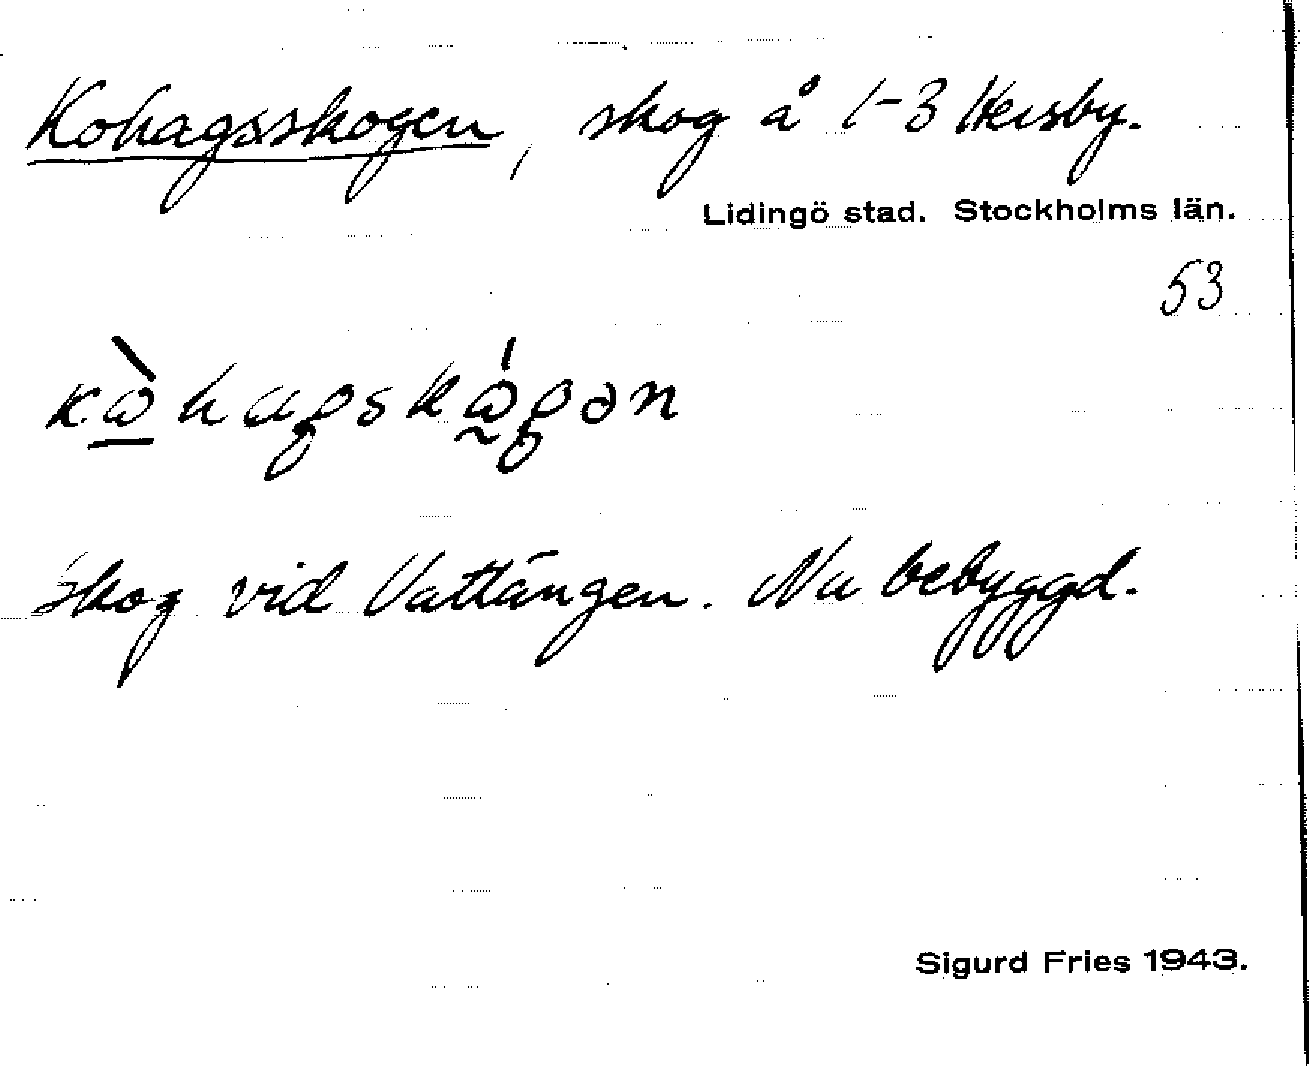 Kohagsskogen, skog å 1-3 Hersby.
Lidingö stad. Stockholms län.
53
kωhagskωgən
Skog vid Vattängen. Nu bebyggd.
Sigurd Fries 1943.